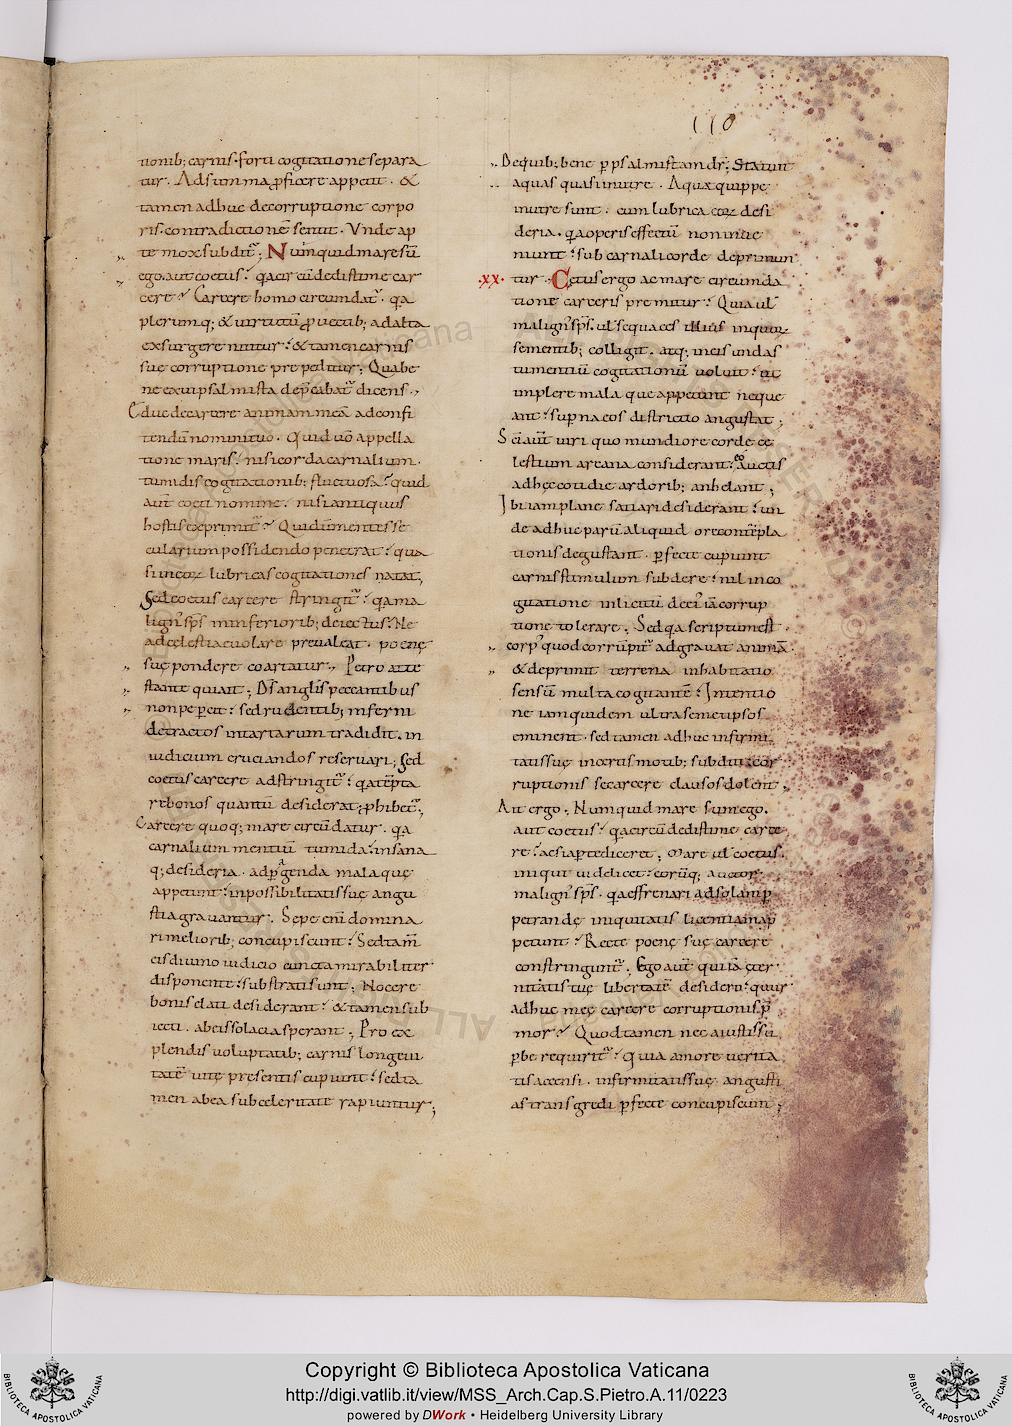 110
tionib; carnis forti cogitatione separa
tur. Ad summa proficere appetit. &
tamen adhuc de corruptione corpo
ris contradictionē sentit. Vnde ap
te mox subdit̄; Numquid mare sū
ego aut coetus? qa circūdedisti me car
cere? Carcere homo circumdat̄. qa
plerumq; & uirtutū prouectib; ad alta
exsurgere nititur? & tamen carnis
sue corruptione prepeditur; Qua be
ne exui psalmista deprecabat̄ dicens.
Educ de carcere animam meā ad confi
tendū nomini tuo. Quid uō appella
tione maris? nisi corda carnalium.
tumidis cogitationib; fluctuosa? quid
aut coeti nomine. nisi antiquus
hostis exprimit̄? Qui dum mentes se
cularium possidendo penetrat? qua
si in eoꝝ lubricas cogitationes natat,
Sed coetus carcere stringit̄? qa ma
lign sps inferiorib; deiectus. Ne
ad celestia euolare preualeat. poenę
suę pondere coartatur. Petro atte
stante qui ait; Ds anglis peccantibus
non pepercit? sed rudentib; inferni
detractos in tartarum tradidit. in
iudicium cruciandos reseruari; Sed
coetus carcere adstringit̄? qa tēpta
re bonos quantū desiderat; phibet̄;
Carcere quoq; mare circūdatur. qa
carnalium mentiū tumida? insana
q; desideria. ad pagenda mala que
appetunt? inpossibilitatis suę angu
stia grauantur. Sepe enī domina
ri meliorib; concupiscunt? Sed tam̄
eis diuino iudicio cuncta mirabiliter
disponente? substrati sunt; Nocere
bonis elati desiderant? & tamen sub
iecti. ab eis solacia sperant; Pro ex
plendis uoluptatib; carnis longeui
tatē uitę presentis cupiunt? sed ta
men ab ea sub celeritate rapiuntur;
De quib; bene p psalmistam dr; Statuit
aquas quasi in utre. Aquę quippe
in utre sunt. cum lubrica eoꝝ desi
deria. qa operis effectū non inue
niunt? sub carnali corde deprimun
·xx· tur. Cetus ergo ac mare circumda
tione carceris premitur? Quia ul
malign sps. ul sequaces illius in quoꝝ
se mentib; colligit. atq; in eis undas
tumentiū cogitationū uoluit? ut
implere mala que appetunt neque
ant? supna eos districtio angustat;
Sci aut uiri quo mundiore corde ce
lestium arcana considerant? eo auctis
ad hęc cotidie ardorib; anhelant;
Ibi iam plane satiari desiderant? un
de adhuc parū aliquid ore contēpla
tionis degustant. pfecte cupiunt
carnis stimulum subdere? nil in co
gitatione inlicitū de ei iā corrup
tione tolerare. Sed qa scriptum est
corp quod corrūpit̄ adgrauat animā.
& deprimit terrena inhabitatio
sensū multa cogitantē? Intentio
ne iam quidem ultra semetipsos
eminent. sed tamen adhuc infirmi
tatis suę incertis motib; subditi? cor
ruptionis se carcere clausos dolent;
Ait ergo. Numquid mare sum ego.
aut coetus? qa circūdedisti me carce
re? ac si apte diceret; Mare ul coetus.
iniqui uidelicet? eorūq; auctor
malign sps. qa effrenari ad solam p
petrandę iniquitatis licentiam ap
petunt? Recte poenę suę carcere
constringunt̄; Ego aut qui iā ęter
nitatis tuę libertatē desidero? quur
adhuc meę carcere corruptionis p
mor? Quod tamen nec a iustis su
pbe requirit̄? quia amore uerita
tis accensi. infirmitatis suę angusti
as transgredi pfecte concupiscunt;
Copyright © Biblioteca Apostolica Vaticana
http://digi.vatlib.it/view/MSS_Arch.Cap.S.Pietro.A.11/0223
powered by DWork • Heidelberg University Library